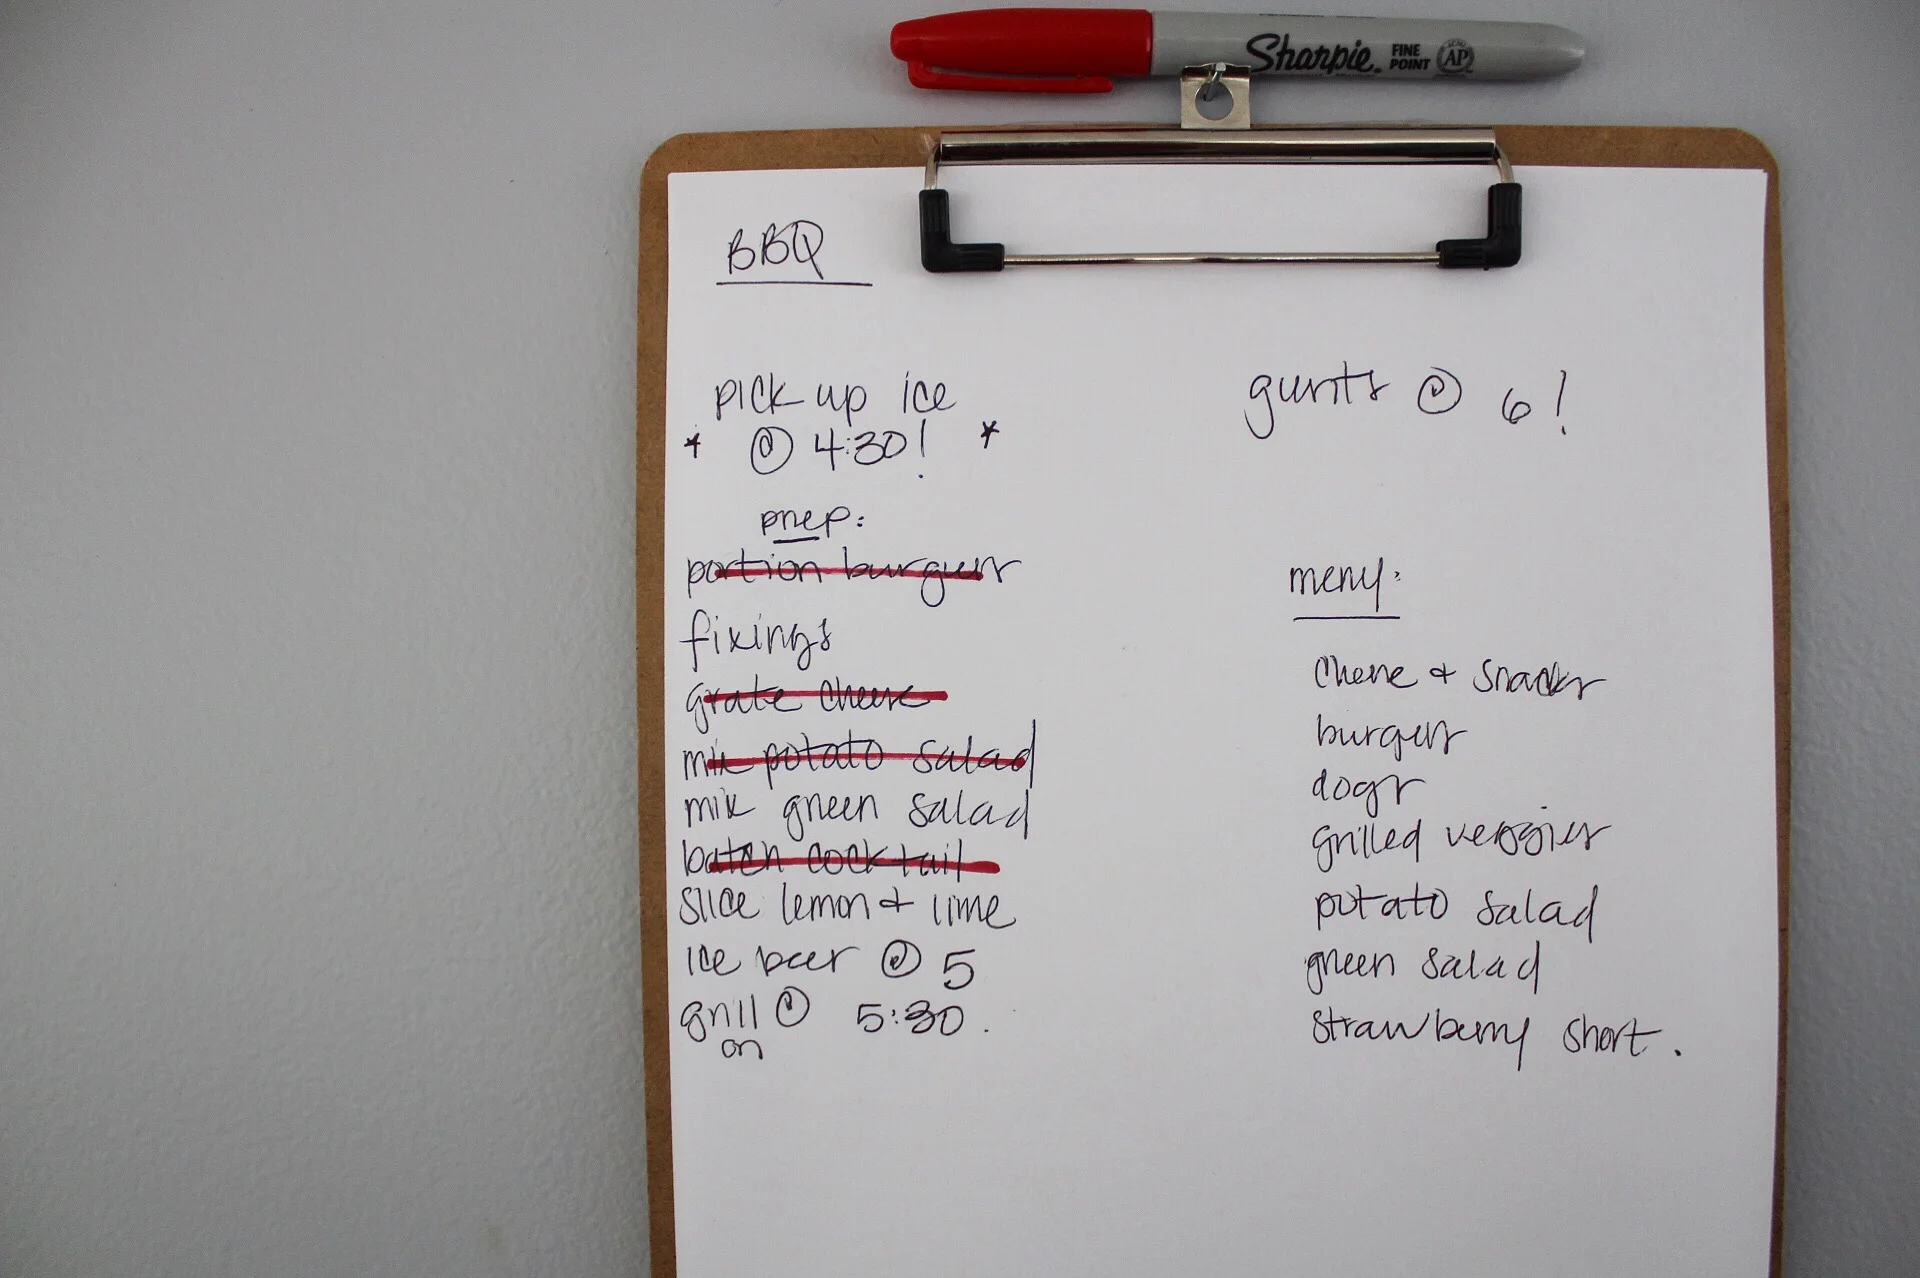 Sharpie. FINE POINT AP
BBQ
pick up ice
* @ 4:30! *
prep:
portion burgers
fixings
grate cheese
mix potato salad
mix green salad
batch cocktail
slice lemon + lime
ice beer @ 5
grill @ 5:30.
on
guests @ 6!
menu:
cheese + snacks
burgers
dogs
grilled veggies
potato salad
green salad
strawberry short.